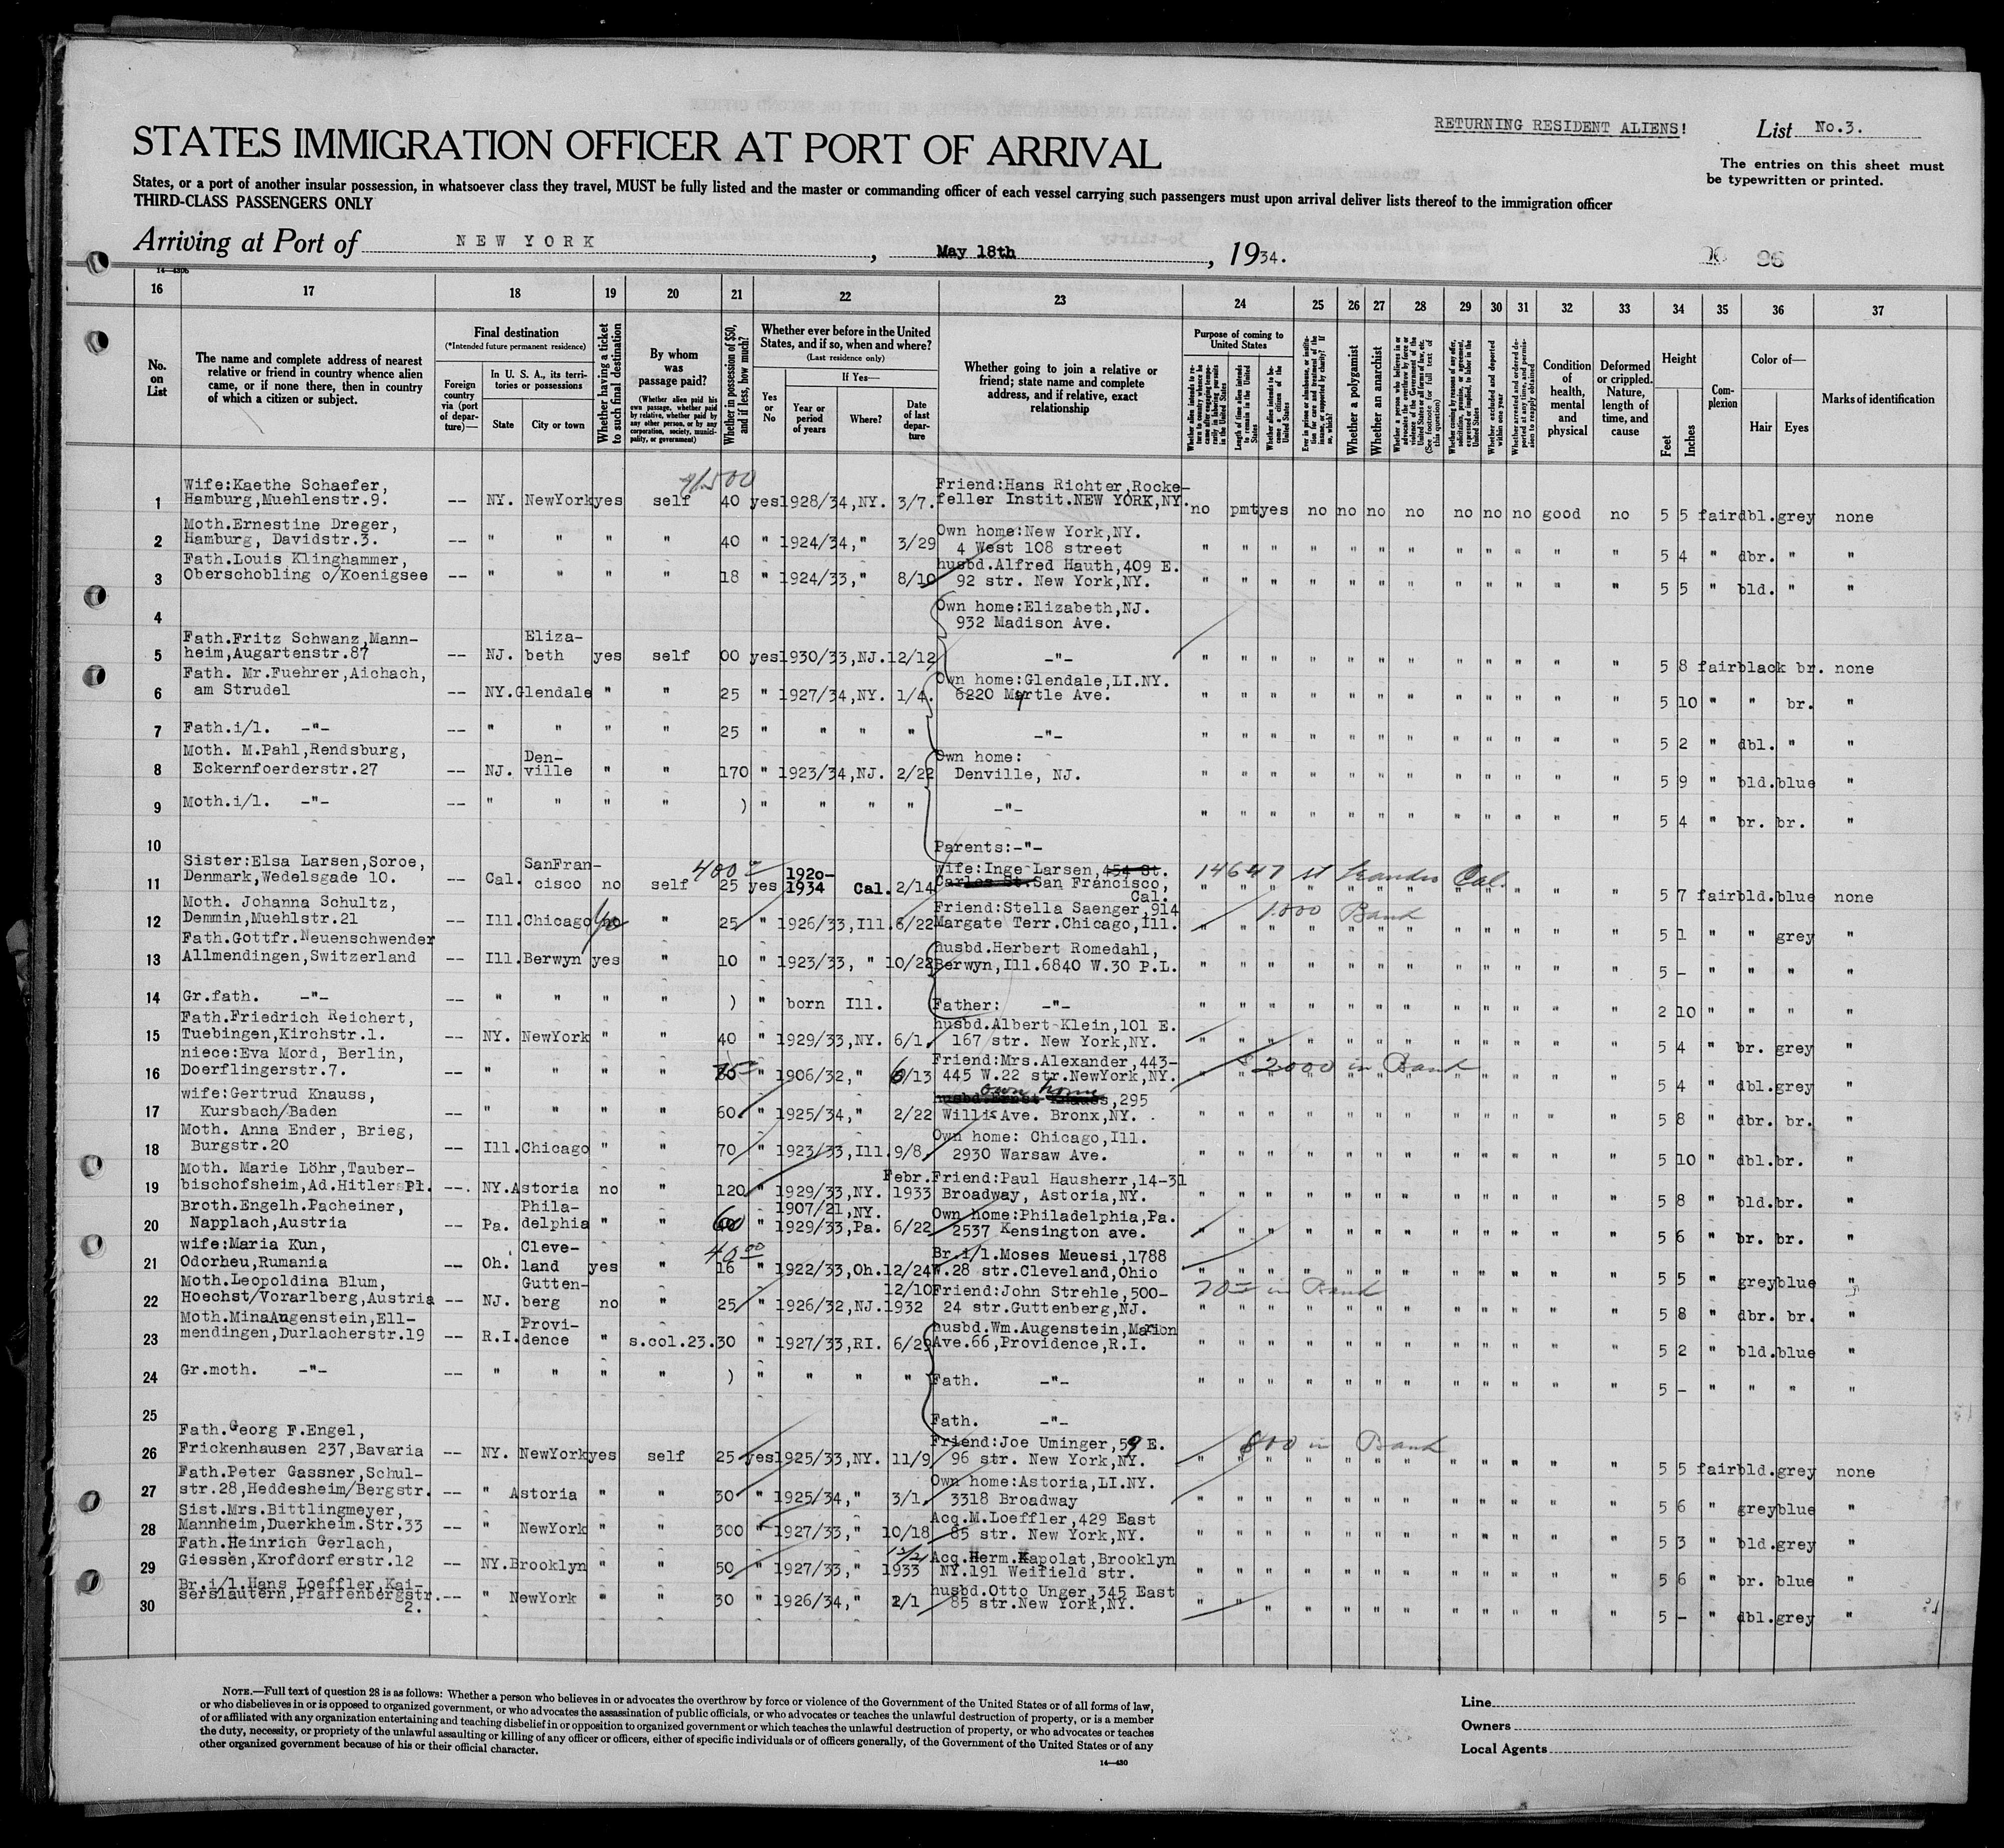 RETURNING RESIDENT ALIENS!
List No.3.
STATES IMMIGRATION OFFICER AT PORT OF ARRIVAL
The entries on this sheet must
be typewritten or printed.
States, or a port of another insular possession, in whatsoever class they travel, MUST be fully listed and the master or commanding officer of each vessel carrying such passengers must upon arrival deliver lists thereof to the immigration officer
THIRD-CLASS PASSENGERS ONLY
Arriving at Port of NEW YORK , May 18th , 1934.
96
14—430b
16 17 18 19 20 21 22 23 24 25 26 27 28 29 30 31 32 33 34 35 36 37
No. on List
The name and complete address of nearest relative or friend in country whence alien came, or if none there, then in country of which a citizen or subject.
Final destination
(*Intended future permanent residence)
Foreign country via (port of departure)—
In U. S. A., its territories or possessions
State
City or town
Whether having a ticket to such final destination
By whom was passage paid?
(Whether alien paid his own passage, whether paid by relative, whether paid by any other person, or by any corporation, society, municipality, or government)
Whether in possession of $50, and if less, how much?
Whether ever before in the United States, and if so, when and where?
(Last residence only)
Yes or No
If Yes—
Year or period of years
Where?
Date of last departure
Whether going to join a relative or friend; state name and complete address, and if relative, exact relationship
Purpose of coming to United States
Whether alien intends to return to country whence he came after engaging temporarily in laboring pursuits in the United States
Length of time alien intends to remain in the United States
Whether alien intends to become a citizen of the United States
Ever in prison or almshouse, or institution for care and treatment of the insane, or supported by charity? If so, which?
Whether a polygamist
Whether an anarchist
Whether a person who believes in or advocates the overthrow by force or violence of the Government of the United States or all forms of law, etc. (See footnote for full text of this question)
Whether coming by reasons of any offer, solicitation, promise, or agreement, expressed or implied, to labor in the United States
Whether excluded and deported within one year
Whether arrested and ordered deported at any time, and permission to reapply obtained
Condition of health, mental and physical
Deformed or crippled. Nature, length of time, and cause
Height
Feet
Inches
Complexion
Color of—
Hair
Eyes
Marks of identification
1 Wife:Kaethe Schaefer, Hamburg,Muehlenstr.9. -- NY. NewYork yes self 40 yes 1928/34,NY. 3/7. Friend:Hans Richter,Rockefeller Instit.NEW YORK,NY. no pmt yes no no no no no no no good no 5 5 fair dbl. grey none
2 Moth.Ernestine Dreger, Hamburg, Davidstr.3. -- " " " " 40 " 1924/34," 3/29 Own home:New York,NY. 4 West 108 street " " " " " " " " " " " " 5 4 " dbr. " "
3 Fath.Louis Klinghammer, Oberschobling o/Koenigsee -- " " " " 18 " 1924/33," 8/10 husbd.Alfred Hauth,409 E. 92 str. New York,NY. " " " " " " " " " " " " 5 5 " bld. " "
4 Own home:Elizabeth,NJ. 932 Madison Ave.
5 Fath.Fritz Schwanz,Mannheim,Augartenstr.87 -- NJ. Elizabeth yes self 00 yes 1930/33,NJ. 12/12 -"- " " " " " " " " " " " " 5 8 fair black br. none
6 Fath. Mr.Fuehrer,Aichach, am Strudel -- NY. Glendale " " 25 " 1927/34,NY. 1/4. Own home:Glendale,LI.NY. 6220 Myrtle Ave. " " " " " " " " " " " " 5 10 " " br. "
7 Fath.i/l. -"- -- " " " " 25 " " " " -"- " " " " " " " " " " " " 5 2 " dbl. " "
8 Moth. M.Pahl,Rendsburg, Eckernfoerderstr.27 -- NJ. Denville " " 170 " 1923/34,NJ. 2/22 Own home: Denville, NJ. " " " " " " " " " " " " 5 9 " bld. blue "
9 Moth.i/l. -"- -- " " " " ) " " " " -"- " " " " " " " " " " " " 5 4 " br. br. "
10 Parents:-"-
11 Sister:Elsa Larsen,Soroe, Denmark,Wedelsgade 10. -- Cal. SanFrancisco no self 400 25 yes 1920-1934 Cal. 2/14 Wife:Inge Larsen,454 St. Carlos St.San Francisco, Cal. 14647 St Leandro Cal. 5 7 fair bld. blue none
12 Moth. Johanna Schultz, Demmin,Muehlstr.21 -- Ill. Chicago no " 25 " 1926/33,Ill. 6/22 Friend:Stella Saenger,914 Margate Terr.Chicago,Ill. 1000 Bank " " " " " " " " " " " " 5 1 " " grey "
13 Fath.Gottfr.Neuenschwender Allmendingen,Switzerland -- Ill. Berwyn yes " 10 " 1923/33, " 10/22 husbd.Herbert Romedahl, Berwyn,Ill.6840 W.30 P.L. " " " " " " " " " " " " 5 - " " " "
14 Gr.fath. -"- -- " " " " ) " born Ill. Father: -"- " " " " " " " " " " " " 2 10 " " " "
15 Fath.Friedrich Reichert, Tuebingen,Kirchstr.1. -- NY. NewYork " " 40 " 1929/33,NY. 6/1. husbd.Albert Klein,101 E. 167 str. New York,NY. " " " " " " " " " " " " 5 4 " br. grey "
16 niece:Eva Mord, Berlin, Doerflingerstr.7. -- " " " " " 1906/32," 6/13 Friend:Mrs.Alexander,443-445 W.22 str.NewYork,NY. $2000 in Bank 5 4 " dbl. grey "
17 wife:Gertrud Knauss, Kursbach/Baden -- " " " " 60 " 1925/34," 2/22 own home husbd.Ernst Knauss,295 Willis Ave. Bronx,NY. " " " " " " " " " " " " 5 8 " dbr. br. "
18 Moth. Anna Ender, Brieg, Burgstr.20 -- Ill. Chicago " " 70 " 1923/33,Ill. 9/8. Own home: Chicago,Ill. 2930 Warsaw Ave. " " " " " " " " " " " " 5 10 " dbl. br. "
19 Moth. Marie Löhr,Tauberbischofsheim,Ad.Hitlers Pl. -- NY. Astoria no " 120 " 1929/33,NY. Febr. 1933 Friend:Paul Hausherr,14-31 Broadway, Astoria,NY. " " " " " " " " " " " " 5 8 " bld. br. "
20 Broth.Engelh.Pacheiner, Napplach,Austria -- Pa. Philadelphia " " 600 " 1907/21,NY. 1929/33,Pa. 6/22 Own home:Philadelphia,Pa. 2537 Kensington ave. " " " " " " " " " " " " 5 6 " br. br. "
21 wife:Maria Kun, Odorheu,Rumania -- Oh. Cleveland yes " 40.00 16 " 1922/33,Oh. 12/24 Br.i/l.Moses Meuesi,1788 W.28 str.Cleveland,Ohio " " " " " " " " " " " " 5 5 " grey blue "
22 Moth.Leopoldina Blum, Hoechst/Vorarlberg,Austria -- NJ. Guttenberg no " 25 " 1926/32,NJ. 12/10 1932 Friend:John Strehle,500-24 str.Guttenberg,NJ. 70 in Bank " " " " " " " " " " " " 5 8 " dbr. br. "
23 Moth.MinaAugenstein,Ellmendingen,Durlacherstr.19 -- R.I. Providence " s.col.23. 30 " 1927/33,RI. 6/29 husbd.Wm.Augenstein,Marion Ave.66,Providence,R.I. " " " " " " " " " " " " 5 2 " bld. blue "
24 Gr.moth. -"- -- " " " " ) " " " " Fath. -"- " " " " " " " " " " " " 5 - " " " "
25 Fath. -"-
26 Fath.Georg F.Engel, Frickenhausen 237,Bavaria -- NY. NewYork yes self 25 yes 1925/33,NY. 11/9 Friend:Joe Uminger,59 E. 96 str. New York,NY. 800 in Bank " " " " " " " " " " " " 5 5 fair bld. grey none
27 Fath.Peter Gassner,Schulstr.28,Heddesheim/Bergstr. -- " Astoria " " 30 " 1925/34," 3/1. Own home:Astoria,LI.NY. 3318 Broadway " " " " " " " " " " " " 5 6 " grey blue "
28 Sist.Mrs.Bittlingmeyer, Mannheim,Duerkheim.Str.33 -- " NewYork " " 300 " 1927/33," 10/18 Acq.M.Loeffler,429 East 85 str. New York,NY. " " " " " " " " " " " " 5 3 " bld. grey "
29 Fath.Heinrich Gerlach, Giessen,Krofdorferstr.12 -- NY. Brooklyn " " 50 " 1927/33," 12/21 1933 Acq.Herm.Kapolat,Brooklyn NY.191 Weifield str. " " " " " " " " " " " " 5 6 " br. blue "
30 Br.i/l.Hans Loeffler,Kaiserslautern,Pfaffenbergstr. 2. -- " NewYork " " 30 " 1926/34," 2/1 husbd.Otto Unger,345 East 85 str.New York,NY. " " " " " " " " " " " " 5 - " dbl. grey "
NOTE.—Full text of question 28 is as follows: Whether a person who believes in or advocates the overthrow by force or violence of the Government of the United States or of all forms of law,
or who disbelieves in or is opposed to organized government, or who advocates the assassination of public officials, or who advocates or teaches the unlawful destruction of property, or is a member
of or affiliated with any organization entertaining and teaching disbelief in or opposition to organized government or which teaches the unlawful destruction of property, or who advocates or teaches
the duty, necessity, or propriety of the unlawful assaulting or killing of any officer or officers, either of specific individuals or of officers generally, of the Government of the United States or of any
other organized government because of his or their official character.
14—430
Line
Owners
Local Agents